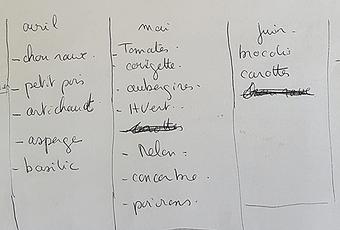 avril
- chou raux.
- petit pois
- artichaut
- asperge
- basilic
mai
- Tomates.
- corigette.
- aubergines.
- H Vert.
- Melon.
- concombre.
- poivrons.
juin.
brocolis
carottes